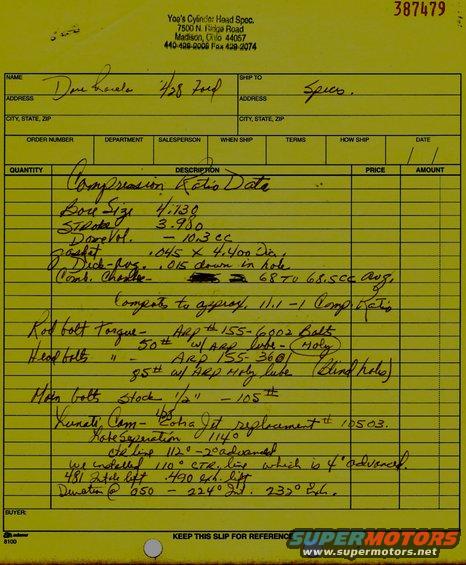 387479
Yoe's Cylinder Head Spec.
7500 N. Ridge Road
Madison, Ohio 44057
440-428-2008 Fax 428-2074
NAME Dave 428 Ford SHIP TO
ADDRESS ADDRESS Specs.
CITY, STATE, ZIP CITY, STATE, ZIP
ORDER NUMBER DEPARTMENT SALESPERSON WHEN SHIP TERMS HOW SHIP DATE
QUANTITY DESCRIPTION PRICE AMOUNT
Compression Ratio Data
Bore Size 4.130
Stroke 3.980
Dome Vol. - 10.3 cc
gasket .045 x 4.400 Dia.
Deck-Avg. .015 down in hole.
Comb. Chamber 68 TO 68.5cc Avg.
Computs to approx. 11.1-1 Comp. Ratio
Rod bolt Torque- ARP # 155-6002 Bolt
50# w/ ARP lube- (Moly)
Head bolts " - ARP 155-3601
85# w/ ARP Moly lube (Blind hole)
Main bolts stock 1/2" - 105#
428
Lunati Cam- Cobra Jet replacement # 10503.
Lobe Seperation 114°
CTR line 112°-2° advanced
we installed 110° CTR. line which is 4° advanced.
481 Intake lift .490 exh. lift
Duration @ 050 - 224° Int. 232° Exh.
BUYER:
adams
8100
KEEP THIS SLIP FOR REFERENCE
SUPERMOTORS
www.supermotors.net